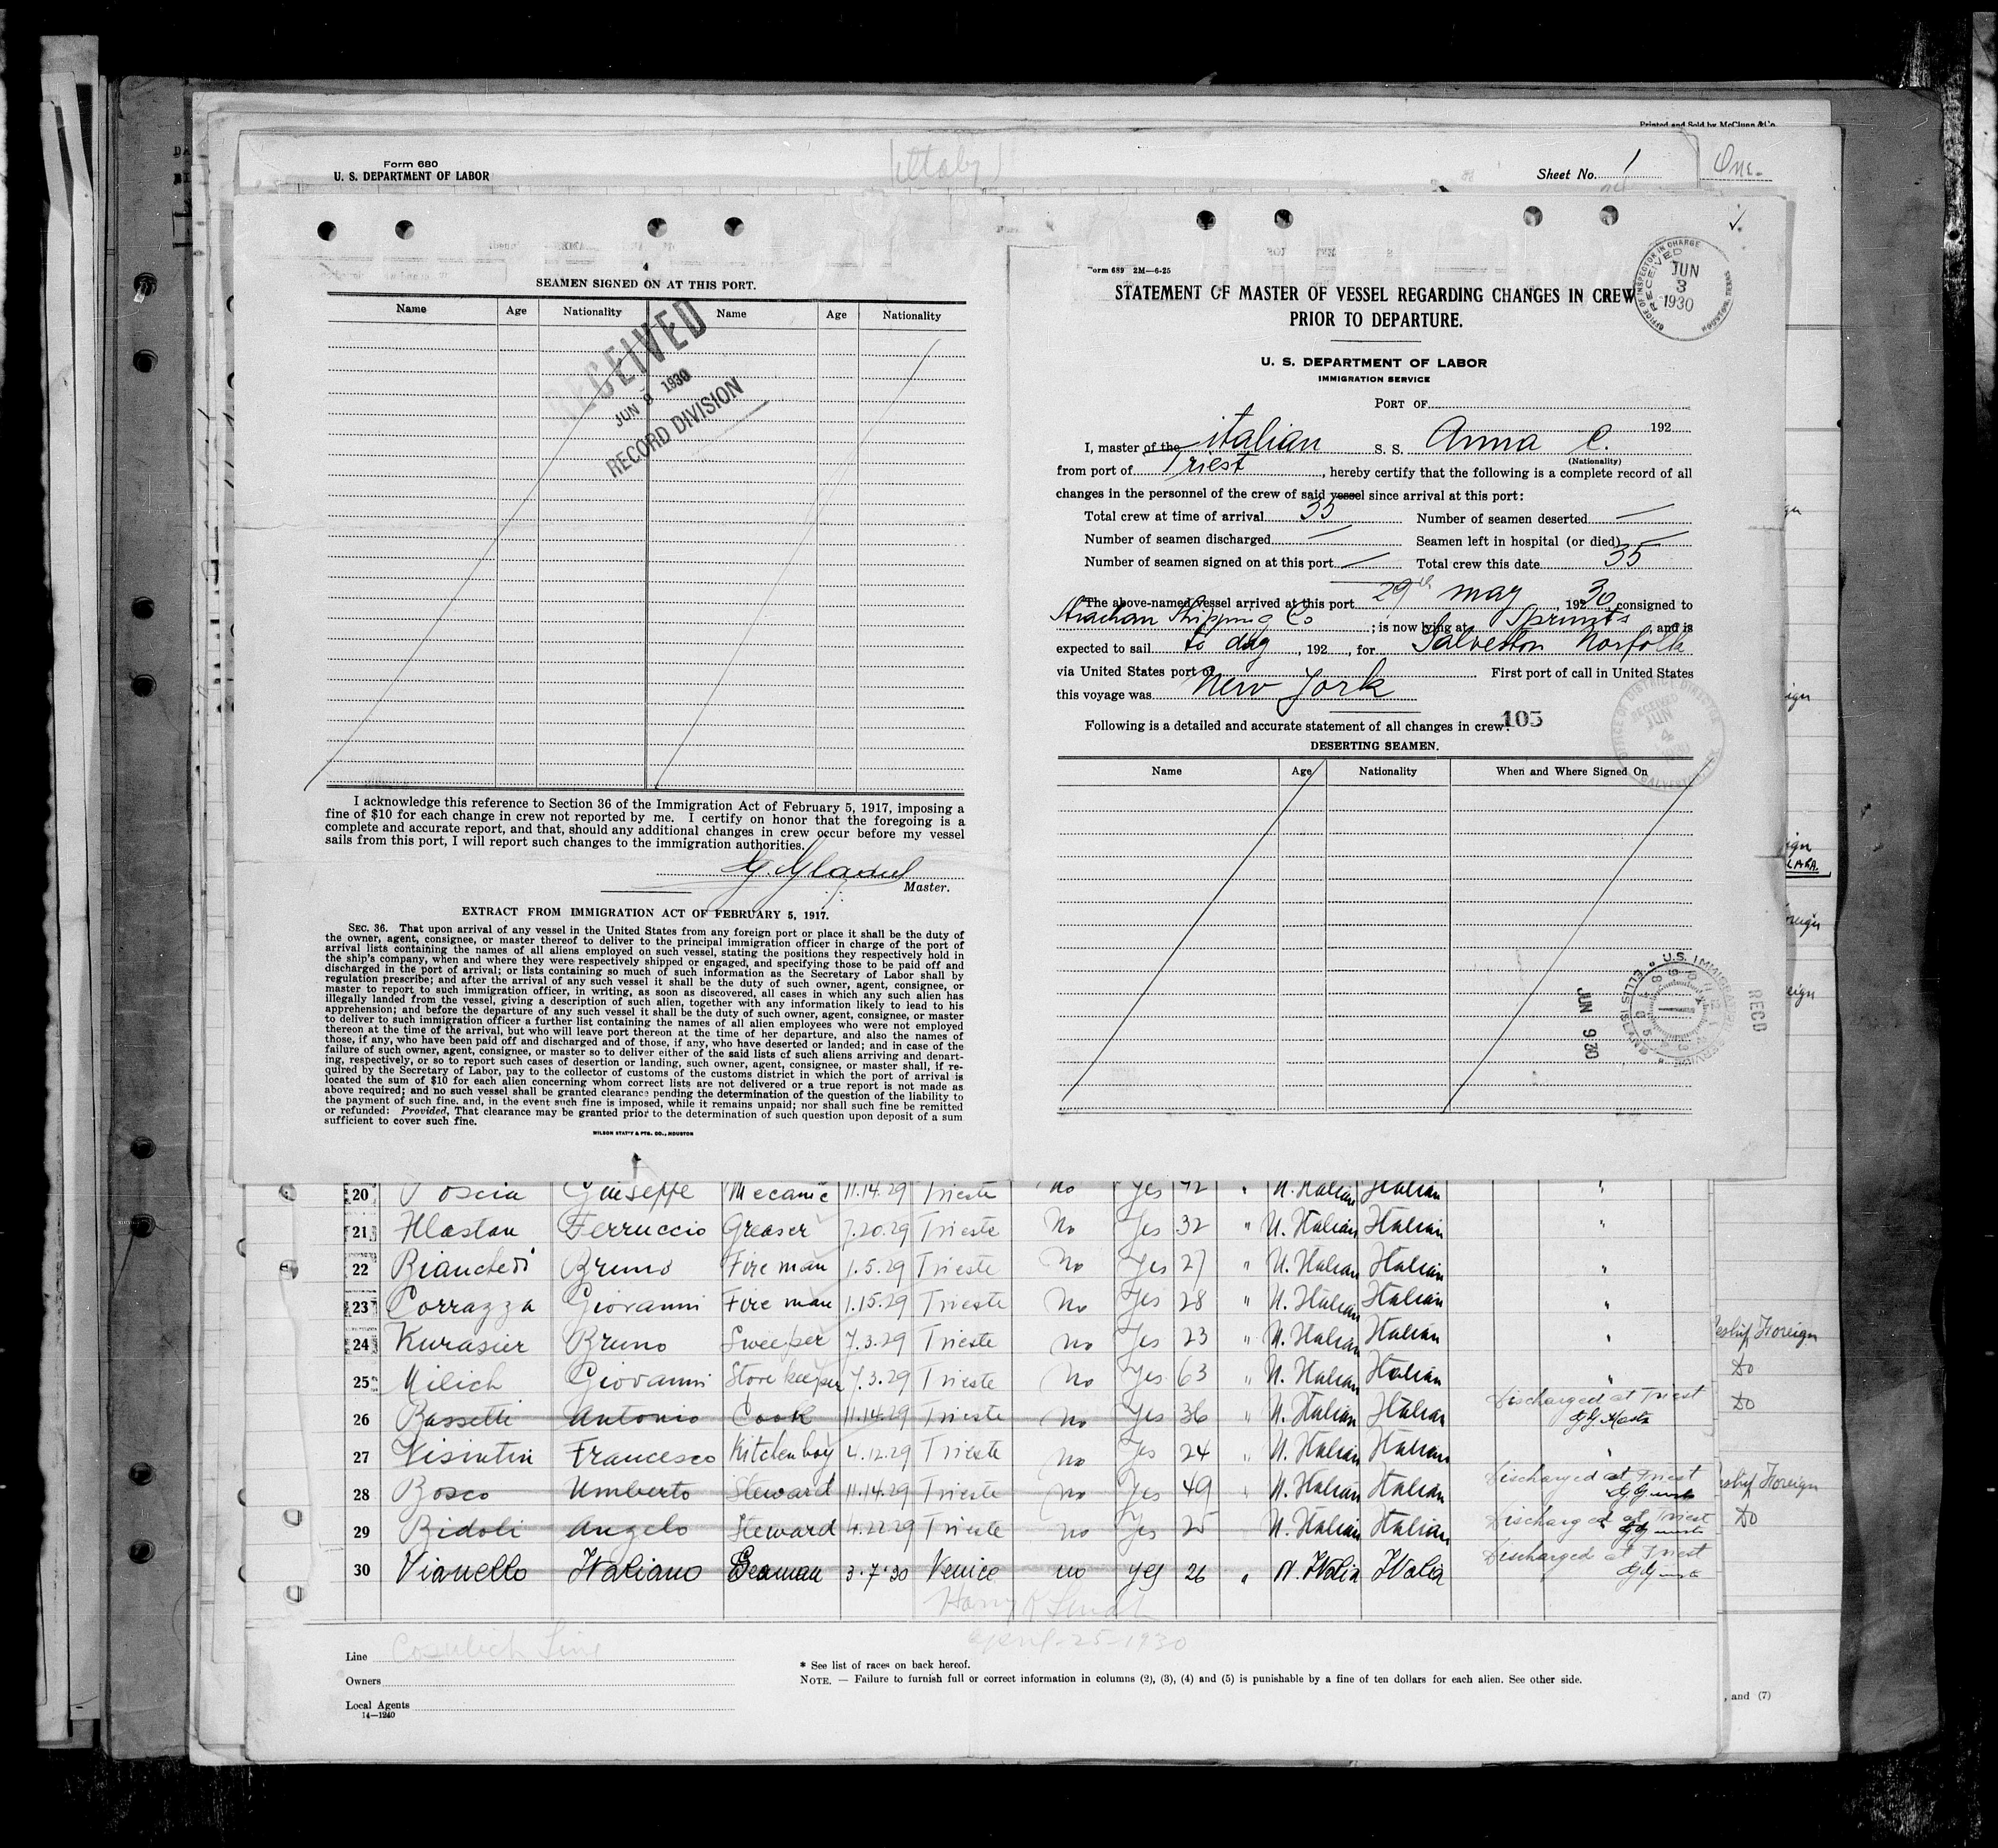 Printed and Sold by McClunn & Co.
Form 680
U. S. DEPARTMENT OF LABOR
Sheet No. 1
One.
4
SEAMEN SIGNED ON AT THIS PORT.
Name Age Nationality Name Age Nationality
RECEIVED
JUN 9 1930
RECORD DIVISION
I acknowledge this reference to Section 36 of the Immigration Act of February 5, 1917, imposing a
fine of $10 for each change in crew not reported by me. I certify on honor that the foregoing is a
complete and accurate report, and that, should any additional changes in crew occur before my vessel
sails from this port, I will report such changes to the immigration authorities.
Master.
EXTRACT FROM IMMIGRATION ACT OF FEBRUARY 5, 1917.
SEC. 36. That upon arrival of any vessel in the United States from any foreign port or place it shall be the duty of
the owner, agent, consignee, or master thereof to deliver to the principal immigration officer in charge of the port of
arrival lists containing the names of all aliens employed on such vessel, stating the positions they respectively hold in
the ship's company, when and where they were respectively shipped or engaged, and specifying those to be paid off and
discharged in the port of arrival; or lists containing so much of such information as the Secretary of Labor shall by
regulation prescribe; and after the arrival of any such vessel it shall be the duty of such owner, agent, consignee, or
master to report to such immigration officer, in writing, as soon as discovered, all cases in which any such alien has
illegally landed from the vessel, giving a description of such alien, together with any information likely to lead to his
apprehension; and before the departure of any such vessel it shall be the duty of such owner, agent, consignee, or master
to deliver to such immigration officer a further list containing the names of all alien employees who were not employed
thereon at the time of the arrival, but who will leave port thereon at the time of her departure, and also the names of
those, if any, who have been paid off and discharged and of those, if any, who have deserted or landed; and in case of the
failure of such owner, agent, consignee, or master so to deliver either of the said lists of such aliens arriving and depart-
ing, respectively, or so to report such cases of desertion or landing, such owner, agent, consignee, or master shall, if re-
quired by the Secretary of Labor, pay to the collector of customs of the customs district in which the port of arrival is
located the sum of $10 for each alien concerning whom correct lists are not delivered or a true report is not made as
above required; and no such vessel shall be granted clearance pending the determination of the question of the liability to
the payment of such fine. and, in the event such fine is imposed, while it remains unpaid; nor shall such fine be remitted
or refunded: Provided, That clearance may be granted prior to the determination of such question upon deposit of a sum
sufficient to cover such fine.
WILSON STAT'Y & PTG. CO., HOUSTON
Form 689 2M—6-25
STATEMENT OF MASTER OF VESSEL REGARDING CHANGES IN CREW
PRIOR TO DEPARTURE.
OFFICE OF INSPECTOR IN CHARGE
RECEIVED
JUN
3
1930
HOUSTON, TEXAS
U. S. DEPARTMENT OF LABOR
IMMIGRATION SERVICE
PORT OF
192
I, master of the italian S. S. Anna C.
(Nationality)
from port of Triest, hereby certify that the following is a complete record of all
changes in the personnel of the crew of said vessel since arrival at this port:
Total crew at time of arrival 35 Number of seamen deserted —
Number of seamen discharged — Seamen left in hospital (or died) —
Number of seamen signed on at this port — Total crew this date 35
The above-named vessel arrived at this port 29th may, 1930, consigned to
Strachan Shipping Co; is now lying at Sprunts, and is
expected to sail to day, 192, for Galveston Norfolk
via United States port of First port of call in United States
this voyage was New York
Following is a detailed and accurate statement of all changes in crew:
105
OFFICE OF DISTRICT DIRECTOR
RECEIVED
JUN
4
1930
GALVESTON
DESERTING SEAMEN.
Name Age Nationality When and Where Signed On
U.S. IMMIGRATION SERVICE ELLIS ISLAND
JUN 9 30
RECD
20 Giuseppe Mecanic 11.14.29 Trieste No Yes 42 " N. Italian Italian "
21 Hlastan Ferruccio Greaser 7.20.29 Trieste No Yes 32 " N. Italian Italian "
22 Bianchedi Bruno Fire man 1.5.29 Trieste No Yes 27 " N. Italian Italian "
23 Corrazza Giovanni Fire man 1.15.29 Trieste No Yes 28 " N. Italian Italian "
24 Kurasier Bruno Sweeper 7.3.29 Trieste No Yes 23 " N. Italian Italian "
25 Milich Giovanni Store keeper 7.3.29 Trieste No Yes 63 " N. Italian Italian "
26 Bassetti Antonio Cook 11.14.29 Trieste No Yes 36 " N. Italian Italian Discharged at Triest
27 Visintin Francesco Kitchen boy 4.12.29 Trieste No Yes 24 " N. Italian Italian "
28 Bosco Umberto Steward 11.14.29 Trieste No Yes 49 " N. Italian Italian Discharged at Triest
29 Bidoli Angelo Steward 4.22.29 Trieste No Yes 25 " N. Italian Italian Discharged at Triest
30 Vianello Italiano Seaman 3.7.30 Venice no yes 26 " N. Italia Italia Discharged at Triest
Foreign
Do
Do
Foreign
Do
April-25-1930
Line Cosulich Line
Owners
Local Agents
14—1240
* See list of races on back hereof.
NOTE. — Failure to furnish full or correct information in columns (2), (3), (4) and (5) is punishable by a fine of ten dollars for each alien. See other side.
, and (7)